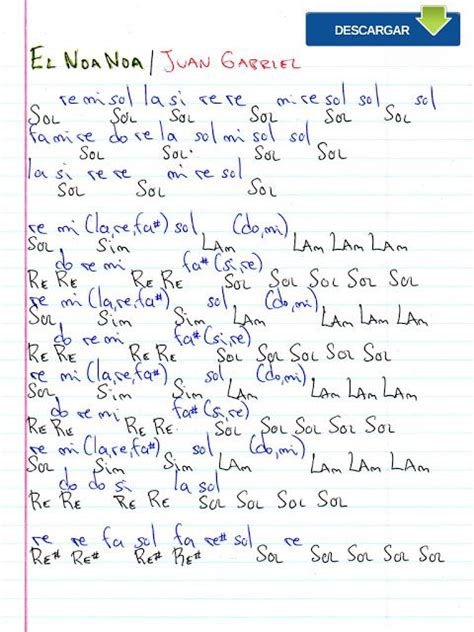 DESCARGAR
EL NOA NOA / JUAN GABRIEL
re mi sol la si re re mi re sol sol sol
SOL SOL SOL SOL SOL SOL
fa mi re do re la sol mi sol sol
SOL SOL. SOL SOL
la si re re mi re sol
SOL SOL SOL
re mi (la,re,fa#) sol (do,mi)
SOL Sim LAm LAm LAm LAm
do re mi fa# (si,re)
RE RE RE RE SOL SOL SOL SOL SOL
re mi (la,re,fa#) sol (do,mi)
SOL Sim Sim LAm LAm LAm LAm
do re mi fa# (si,re)
RE RE RE RE SOL SOL SOL SOL SOL
re mi (la,re,fa#) sol (do,mi)
SOL Sim Sim LAm LAm LAm LAm
do re mi fa# (si,re)
RE RE RE RE SOL SOL SOL SOL SOL
re mi (la,re,fa#) sol (do,mi)
SOL Sim Sim LAm LAm LAm LAm
do do si la sol
RE RE RE RE SOL SOL SOL SOL
re re fa sol fa re# sol re
RE# RE# RE# RE# SOL SOL SOL SOL SOL